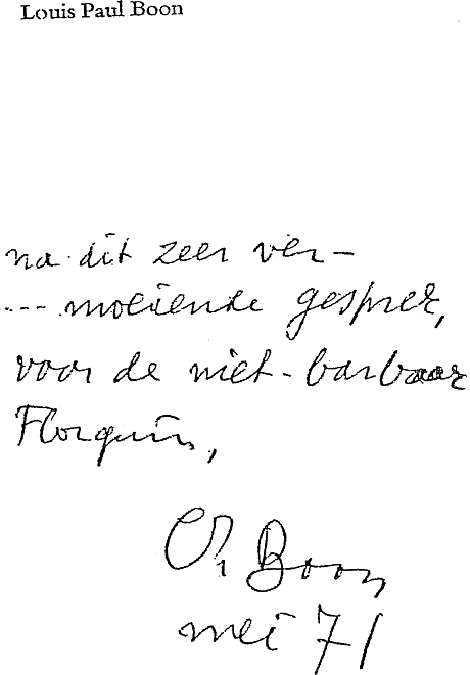 Louis Paul Boon
na dit zeer ver-
---- moeiende gesprek,
voor de niet-barbaar
Florquin,
Boon
mei 71